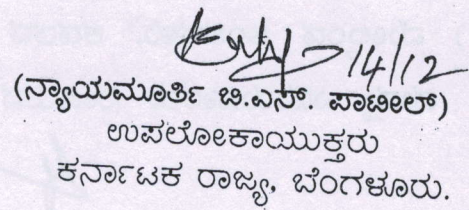 14/12
(ನ್ಯಾಯಮೂರ್ತಿ ಬಿ.ಎಸ್. ಪಾಟೀಲ್)
ಉಪಲೋಕಾಯುಕ್ತರು
ಕರ್ನಾಟಕ ರಾಜ್ಯ, ಬೆಂಗಳೂರು.